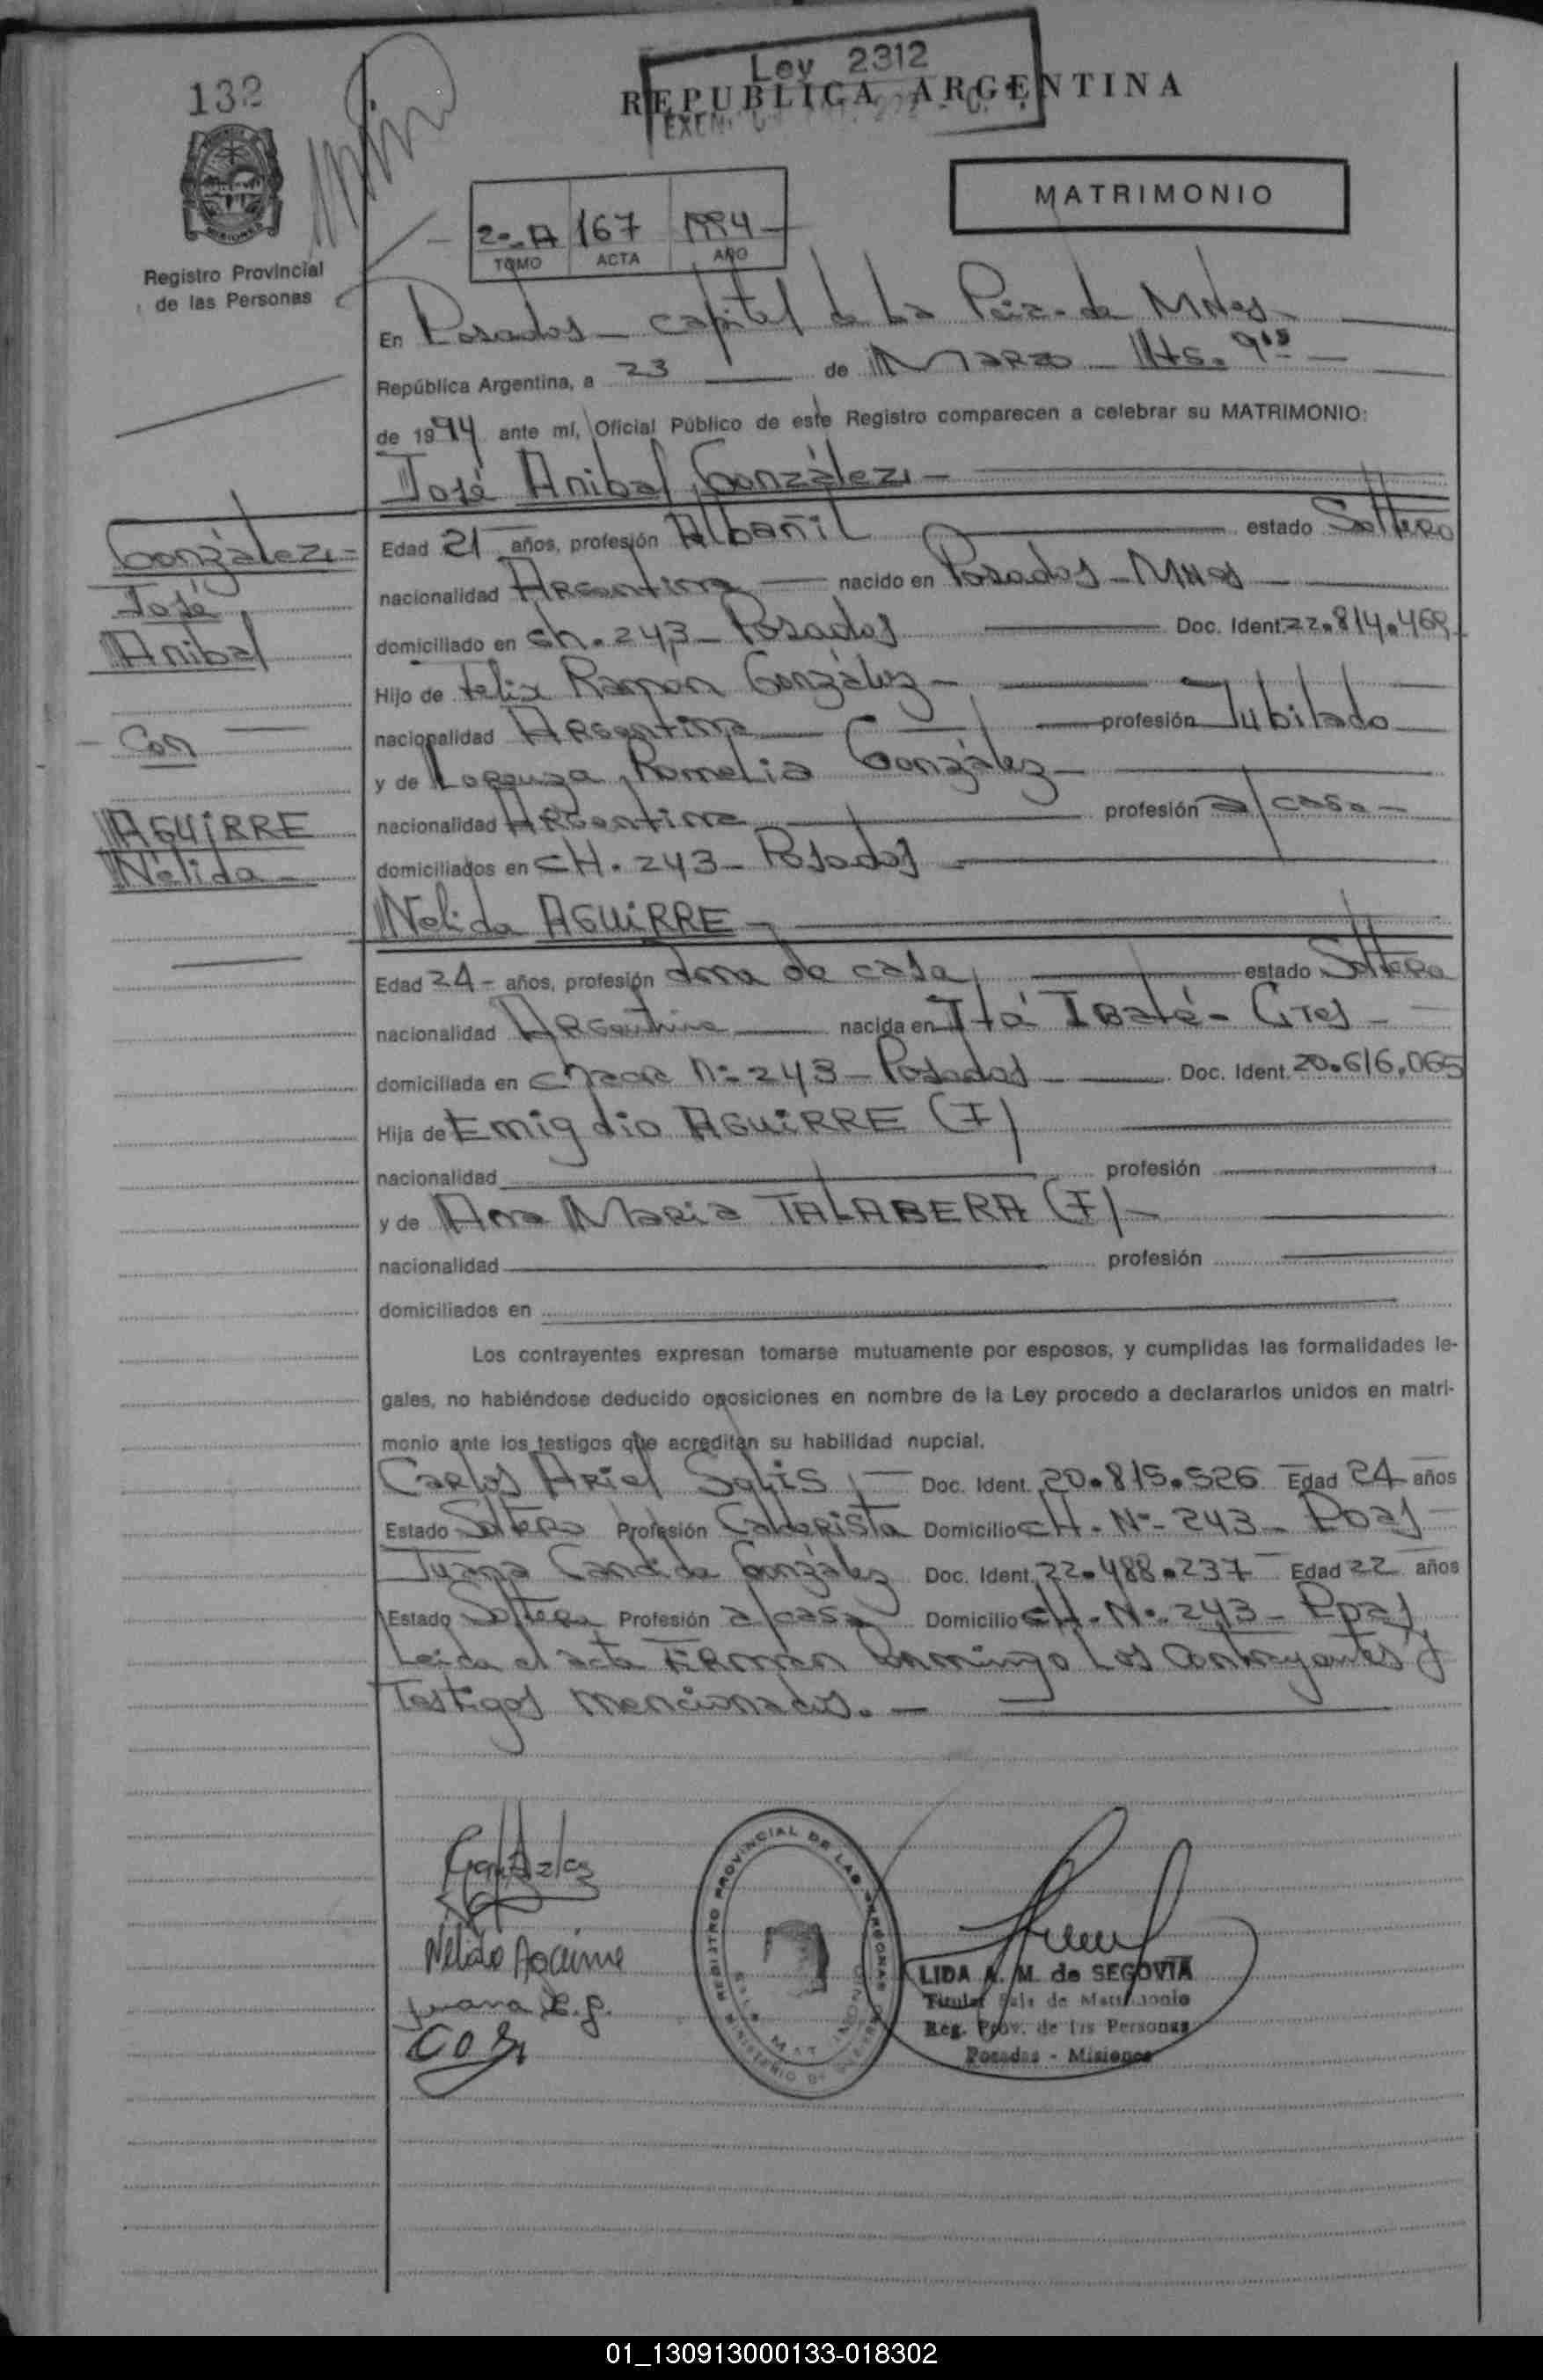 132
Ley 2312
REPUBLICA ARGENTINA
MATRIMONIO
2º A 167 1994
TOMO ACTA AÑO
MISIONES
Registro Provincial
de las Personas
En Posadas - capital de La Pcia. de Mnes
República Argentina, a 23 de Marzo - Hs. 9
de 1994 ante mí, Oficial Público de este Registro comparecen a celebrar su MATRIMONIO:
José Anibal González -
González -
José
Anibal
Con
AGUiRRE
Nélida -
Edad 21 años, profesión Albañil estado Soltero
nacionalidad Argentina nacido en Posadas - Mnes
domiciliado en ch. 243 - Posadas Doc. Ident. 22.814.469
Hijo de Felix Ramon González -
nacionalidad Argentina profesión Jubilado
y de Lorenza Romelia González -
nacionalidad Argentina profesión a/casa -
domiciliados en CH. 243 - Posadas
Nelida AGUiRRE -
Edad 24 - años, profesión ama de casa estado Soltera
nacionalidad Argentina nacida en Itá Ibaté - Ctes -
domiciliada en chacra Nº 243 - Posadas Doc. Ident. 20.616.065
Hija de Emigdio AGUiRRE (F)
nacionalidad profesión
y de Ana Maria TALABERA (F) -
nacionalidad profesión
domiciliados en
Los contrayentes expresan tomarse mutuamente por esposos, y cumplidas las formalidades le-
gales, no habiéndose deducido oposiciones en nombre de la Ley procedo a declararlos unidos en matri-
monio ante los testigos que acreditan su habilidad nupcial.
Carlos Ariel Solis, Doc. Ident. 20.815.526 Edad 24 años
Estado Soltero Profesión Calderista Domicilio CH. Nº 243 - Pdas
Juana Candida González Doc. Ident. 22.488.237 Edad 22 años
Estado Soltera Profesión a/casa Domicilio CH. Nº 243 - Pdas
Leida el acta Firman Conmingo Los Contrayentes y
Testigos mencionados. -
González
Nelida Aguirre
Juana C. g.
REGISTRO PROVINCIAL DE LAS PERSONAS
LIDA A. M. de SEGOVIA
Titular Sala de Matrimonio
Reg. Prov. de las Personas
Posadas - Misiones
01_130913000133-018302